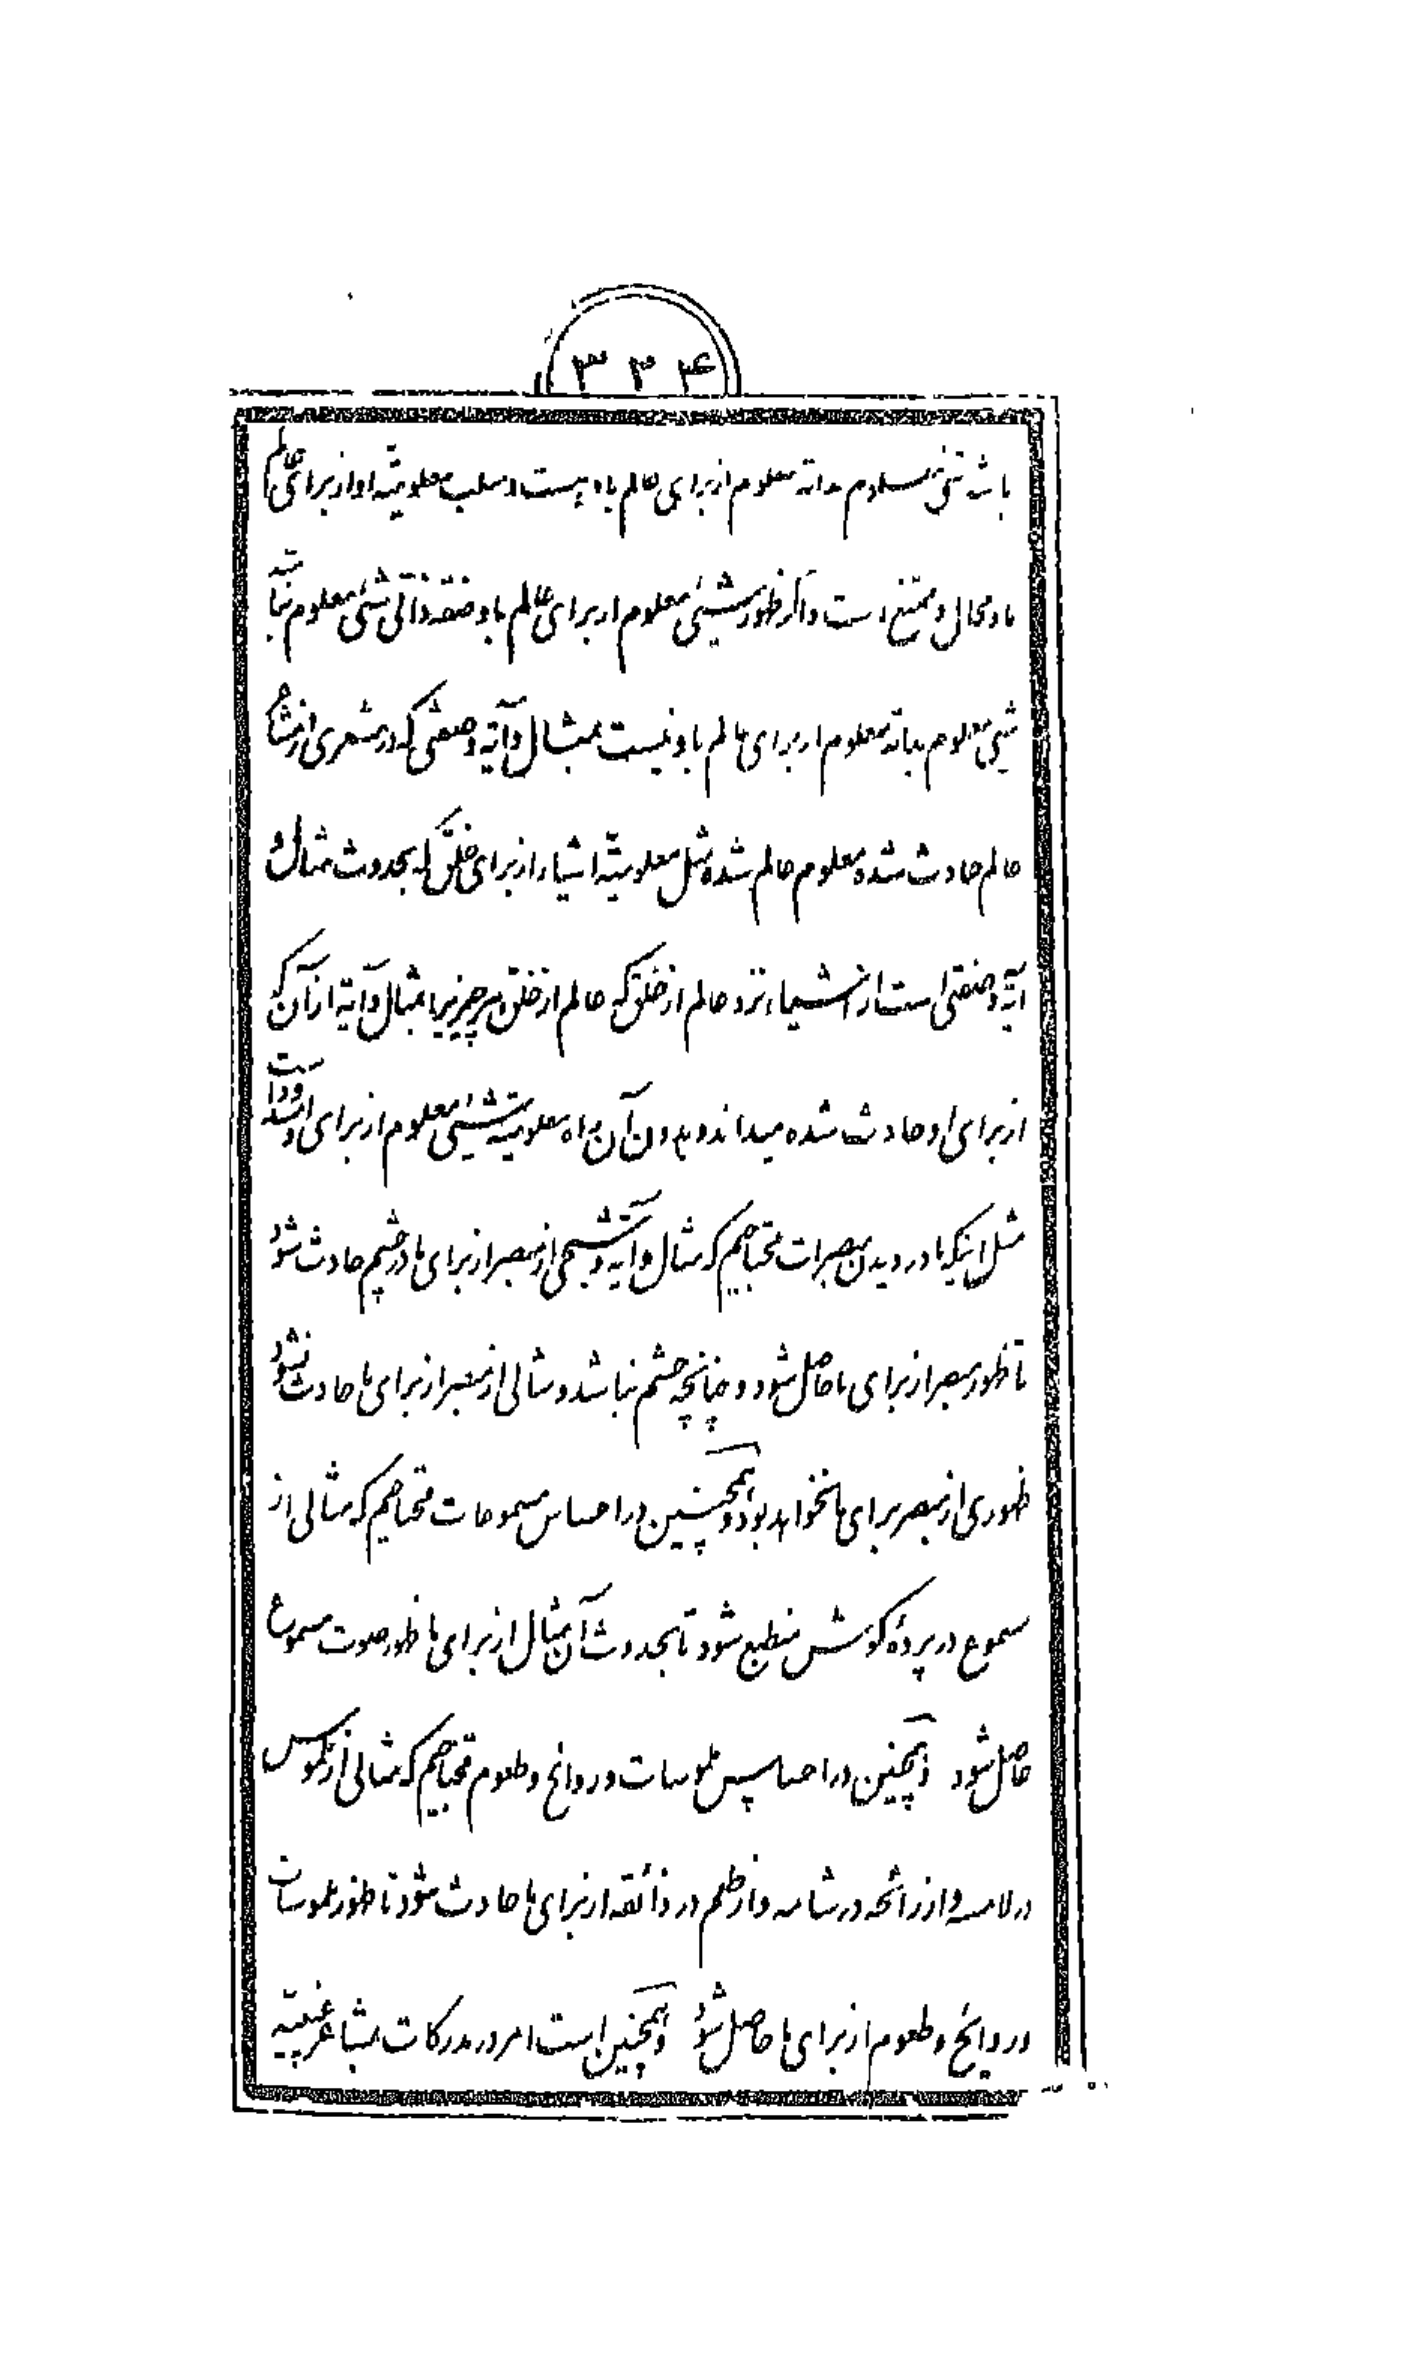 ۳۳۴
باشد شیئ معلوم بذاته معلوم از برای عالم باو هست و سلب معلومیّة او از برای عالم
باو محال و ممتنع است و اگر ظهور شیئی معلوم از برای عالم باو صفة ذاتی شیئ معلوم نباشد
شیئ معلوم بذاته معلوم از برای عالم باو نیست بمثال و آیة و صفتی که در مشعری از مشاعر
عالم حادث شده معلوم عالم شده مثل معلومیّة اشیاء از برای خلق که بحدوث مثال و
آیة و صفتی است از اشیاء نزد عالم از خلق که عالم از خلق هر چیز را بمثال و آیة از آن که
از برای او حادث شده میداند و بدون آن راه معلومیة شیئی معلوم از برای او مسدود است
مثل اینکه ما در دیدن مبصرات محتاجیم که مثال و آیه و شبحی از مبصر از برای ما در چشم حادث شود
تا ظهور مبصر از برای ما حاصل شود و چنانچه چشم نباشد و مثالی از مبصر از برای ما حادث نشود
ظهوری از مبصر برای ما نخواهد بود و همچنین در احساس مسموعات محتاجیم که مثالی از
مسموع در پردهٔ کوش منطبع شود تا بحدوث آن مثال از برای ما ظهور صوت مسموع
حاصل شود و همچنین در احساس ملموسات و روائح و طعوم محتاجیم که مثالی از ملموس
در لامسه و از رائحه در شامه و از طعم در ذائقه از برای ما حادث شود تا ظهور ملموسات
و روایح و طعوم از برای ما حاصل شود و همچنین است امر در مدرکات بمشاعر غیبیّه